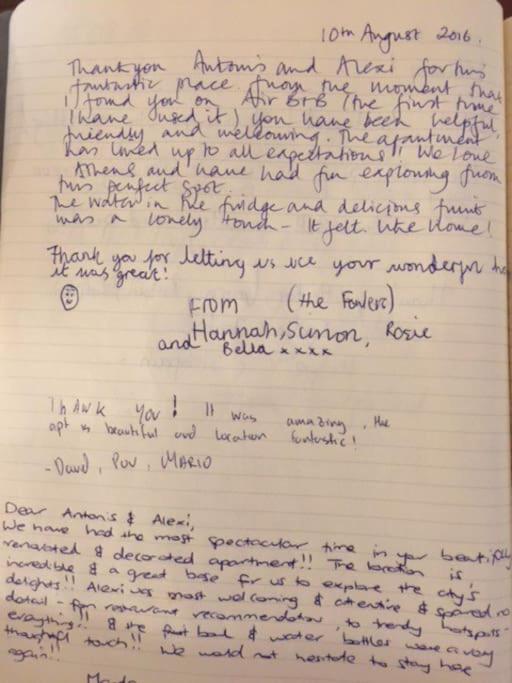 10th August 2016.
Thankyou Antonis and Alexi for this
fantastic place. From the moment that
I found you on Air B+B (the first time
I have used it) you have been helpful,
friendly and welcoming. The apartment
has lived up to all expectations!! We love
Athens and have had fun exploring from
this perfect spot.
The water in the fridge and delicious fruit
was a lovely touch - It felt like home!
Thank you for letting us use your wonderful
it was great!
FROM (the Fowlers)
Hannah, Simon, Rosie
and Bella xxxx
THANK YOU! It was amazing, the
apt is beautiful and location fantastic!
- David, POV, MARIO
Dear Antonis & Alexi,
We have had the most spectacular time in your beautifully
renovated & decorated apartment!! The location is
incredible & a great base for us to explore the city's
delights!! Alexi was most welcoming & attentive & spared no
detail - from restaurant recommendations, to trendy hotspots -
everything!!! & the fruit bowl & water bottles were a very
thoughtful touch!! We would not hesitate to stay here
again!!